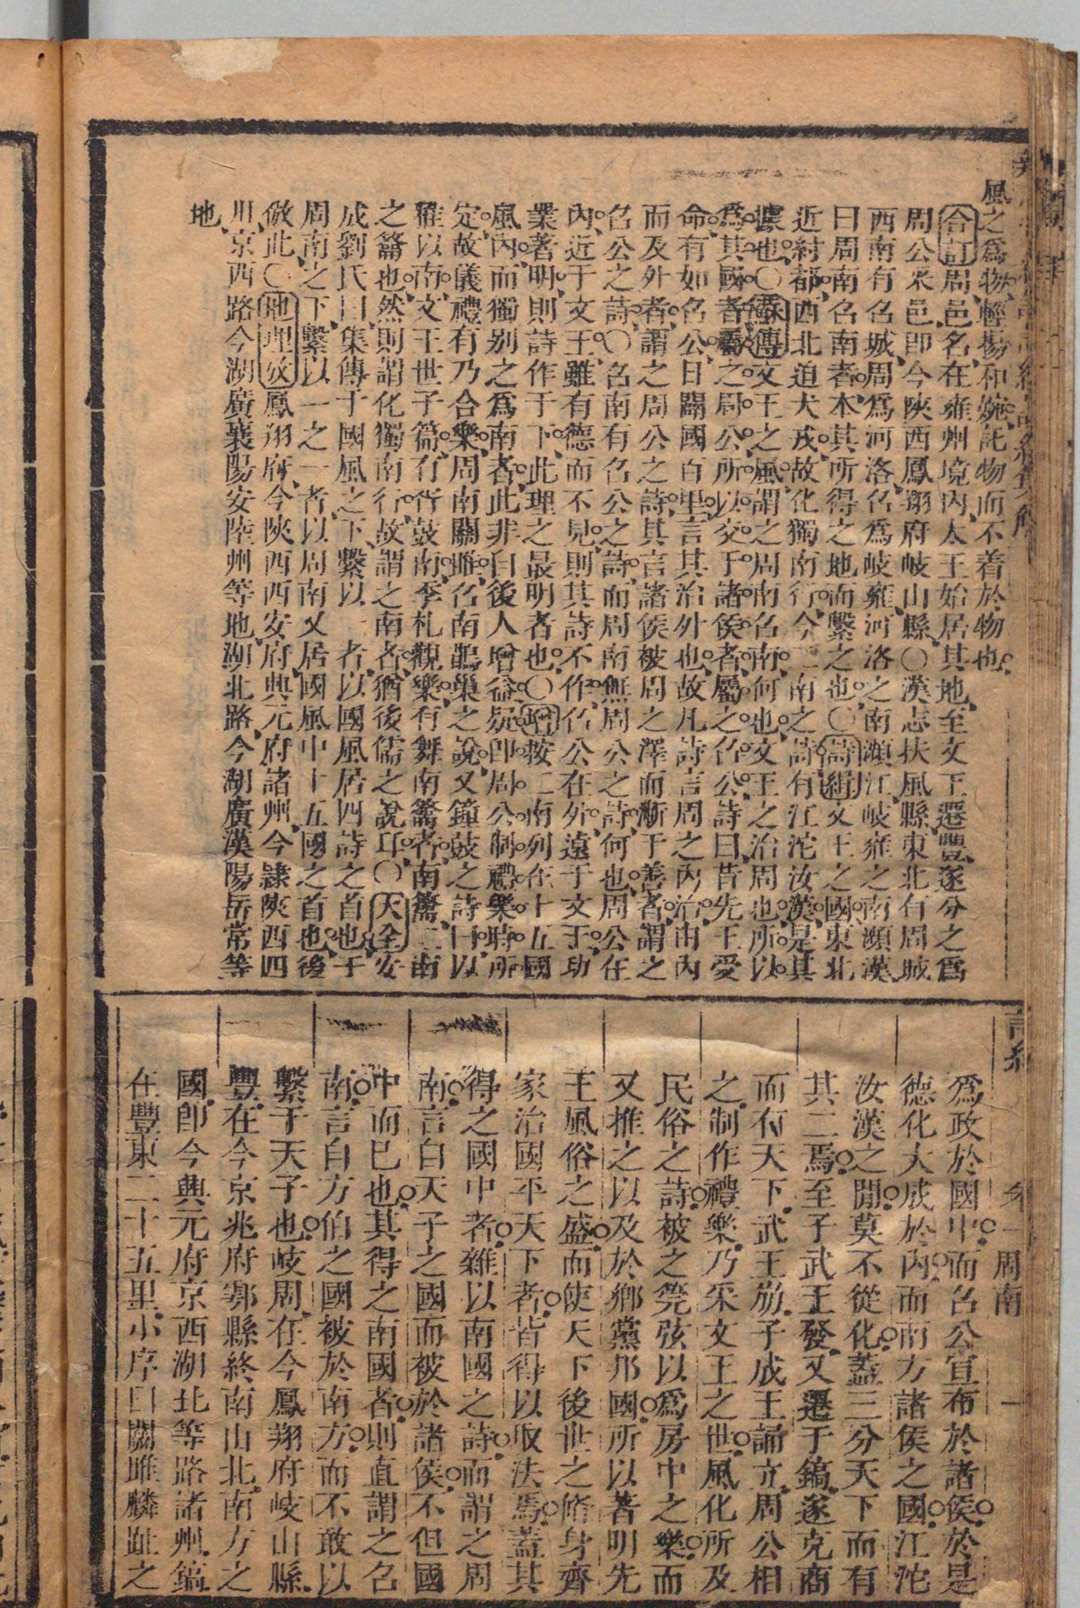 風之爲物輕揚和婉託物而不着於物也
合訂周邑名在雍州境內太王始居其地至文王遷豐遂分之爲
周公采邑卽今陝西鳳翔府岐山縣〇漢志扶風縣東北有周城
西南有召城周爲河洛召爲岐雍河洛之南瀕江岐雍之南瀕漢
曰周南召南者本其所得之地而繫之也〇詩緝文王之國東北
近紂都西北迫犬戎故化獨南行今二南之詩有江沱汝漢是其
據也〇蘇傳文王之風謂之周南召南何也文王之治周也所以
爲其國者屬之周公所以交于諸侯者屬之召公詩曰昔先王受
命有如召公日闢國百里言其治外也故凡詩言周之內治由內
而及外者謂之周公之詩其言諸侯被周之澤而漸于善者謂之
召公之詩〇召南有召公之詩而周南無周公之詩何也周公在
內近于文王雖有德而不見則其詩不作召公在外遠于文王功
業著明則詩作于下此理之最明者也〇增按二南列在十五國
風內而獨別之爲南者此非曰後人增益疑卽周公制禮樂時所
定故儀禮有乃合樂周南關雎召南鵲巢之說又鐘鼓之詩曰以
雅以南文王世子篇有胥鼓南季札觀樂有舞南籥者南籥二南
之籥也然則謂化獨南行故謂之南者猶後儒之說耳〇大全安
成劉氏曰集傳于國風之下繫以一者以國風居四詩之首也于
周南之下繫以一之一者以周南又居國風中十五國之首也後
倣此〇地理攷鳳翔府今陝西西安府興元府諸州今隷陝西四
川京西路今湖廣襄陽安陸州等地湖北路今湖廣漢陽岳常等
地
詩經 卷一周南 一
爲政於國中而召公宣布於諸侯於是
德化大成於內而南方諸侯之國江沱
汝漢之閒莫不從化蓋三分天下而有
其二焉至子武王發又遷于鎬遂克商
而有天下武王崩子成王誦立周公相
之制作禮樂乃采文王之世風化所及
民俗之詩被之筦弦以爲房中之樂而
又推之以及於鄉黨邦國所以著明先
王風俗之盛而使天下後世之脩身齊
家治國平天下者皆得以取法焉蓋其
得之國中者雜以南國之詩而謂之周
南言自天子之國而被於諸侯不但國
中而已也其得之南國者則直謂之召
南言自方伯之國被於南方而不敢以
繫于天子也岐周在今鳳翔府岐山縣
豐在今京兆府鄠縣終南山北南方之
國卽今興元府京西湖北等路諸州鎬
在豐東二十五里小序曰關雎麟趾之